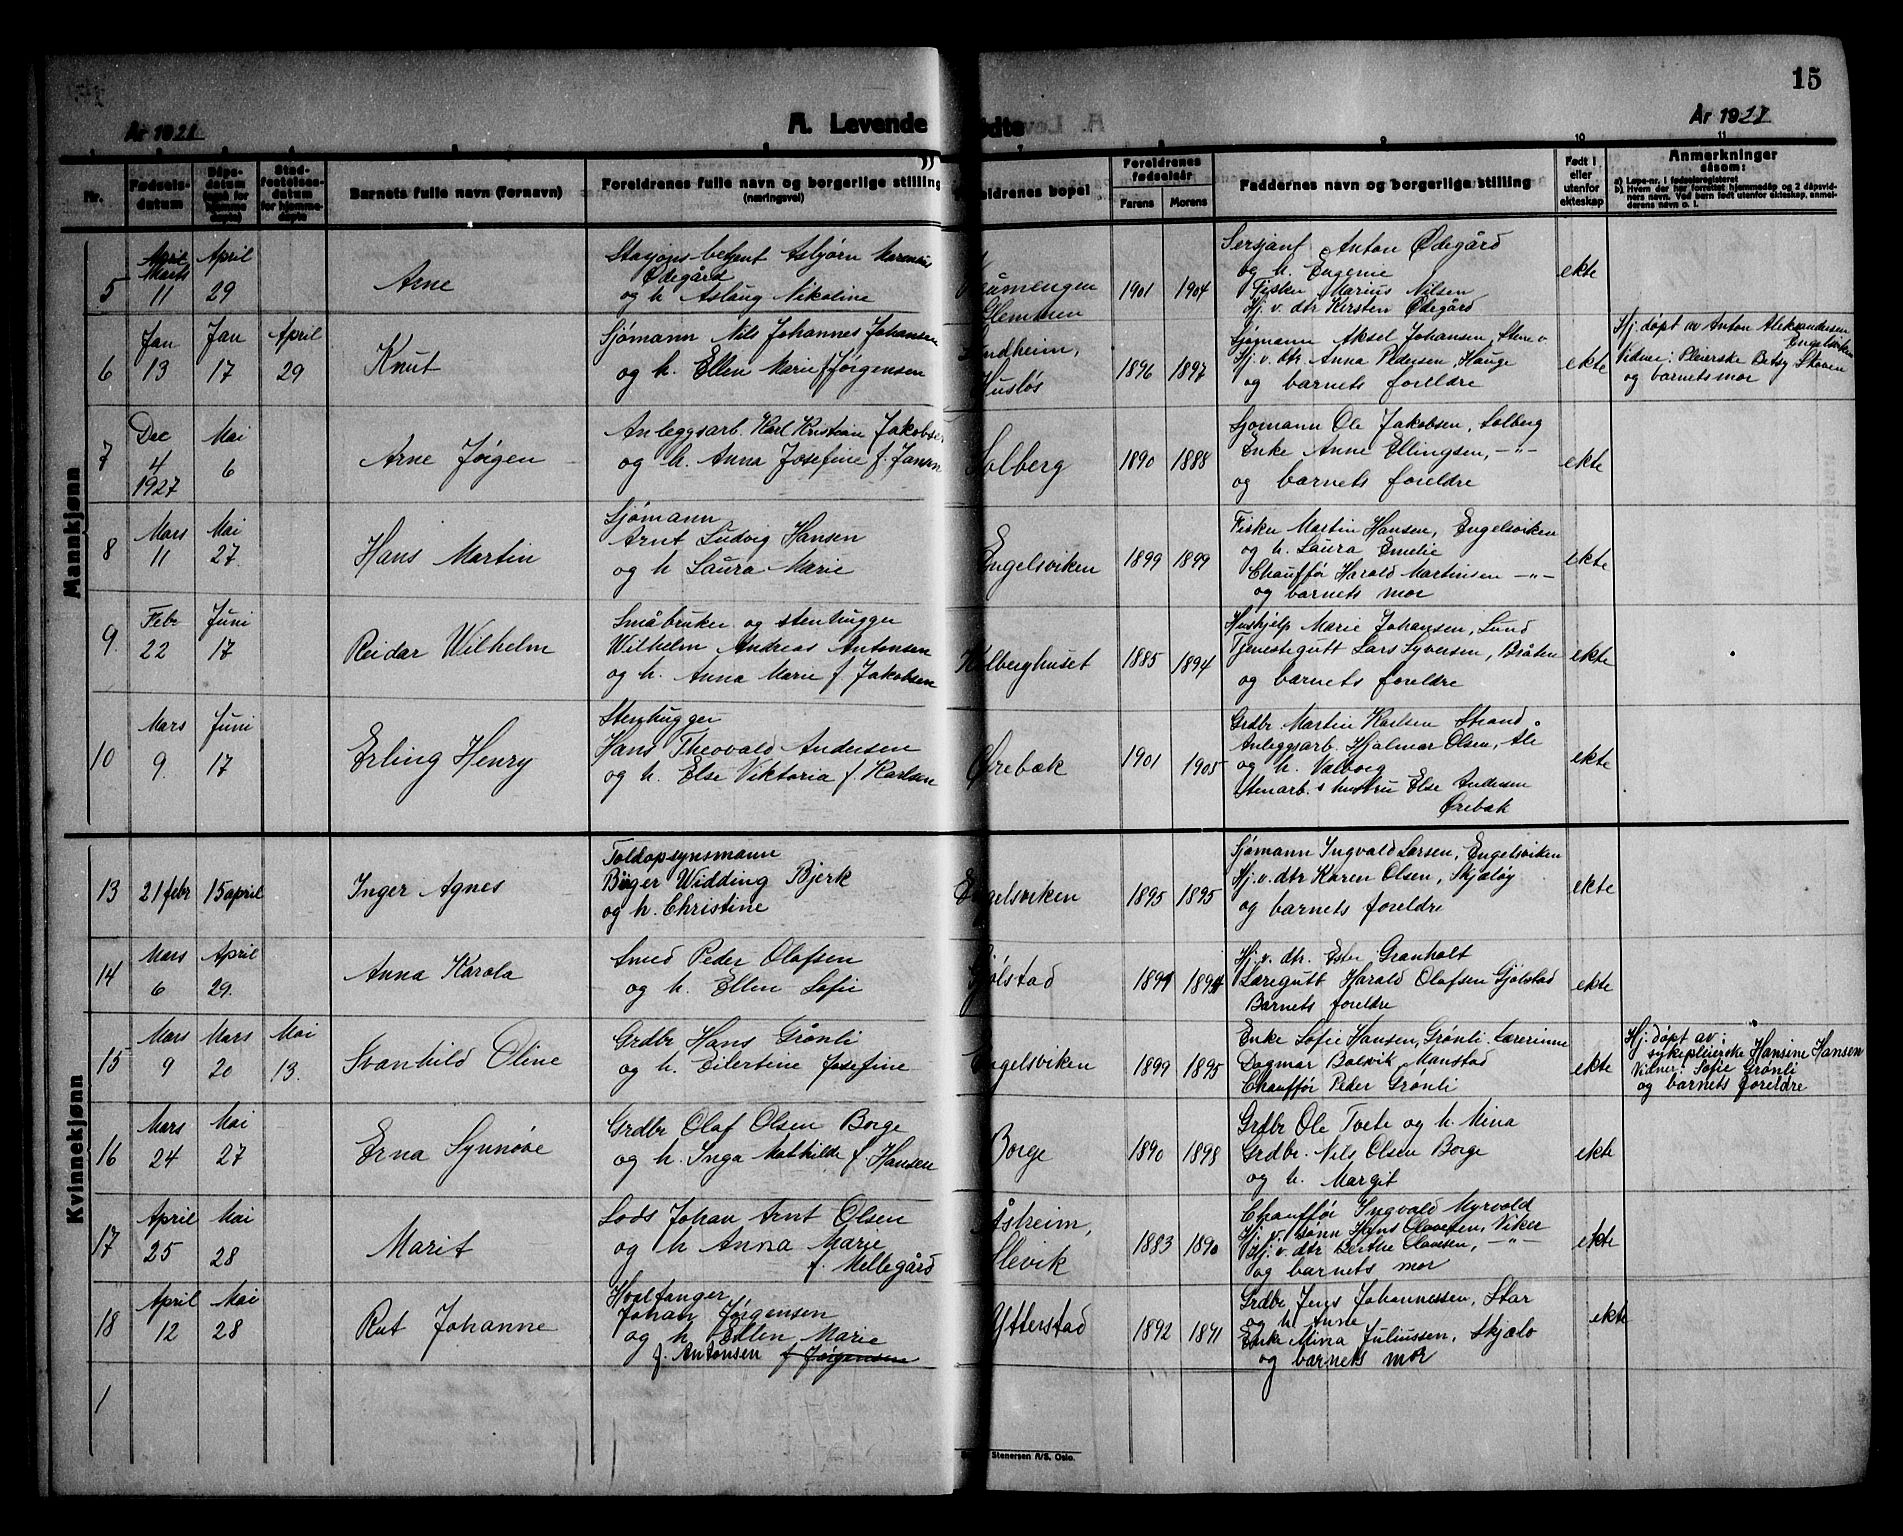 15
År 1928
A. Levende
ødte
År 1928
Nr.
Fødsels-
datum
Dåps-
datum
Stad-
festelses-
datum
for hjemme-
døpte
Barnets fulle navn (fornavn)
Foreldrenes fulle navn og borgerlige stilling
(næringsvei)
ldrenes bopel
Foreldrenes
fødselsår
Farens
Morens
Faddernes navn og borgerlige stilling
Født i
eller
utenfor
ekteskap
Anmerkninger
såsom:
a) Løpe-nr. i fødselsregisteret
b) Hvem der har forrettet hjemmedåp og 2 dåpsvid-
ners navn. Ved barn født utenfor ekteskap, anmel-
derens navn o. l.
Mannkjønn
5
Marts
11
April
29
Arne
Stasjonsbetjent Asbjørn Marenius
Ødegård
og h Aslaug Nikoline
Glemmen
1901
1904
Sersjant Anton Ødegård
og h. Eugenie
Fisker Marius Nilsen
Hj. v. dtr Kirsten Ødegård
ekte
6
Jan
13
Jan
17
April
29
Knut
Sjømann Nils Johannes Johansen
og h. Ellen Marie f Jørgensen
ndheim,
Husløs
1896
1897
Sjømann Aksel Johansen,
Hj. v. dtr. Anna Pedersen, Hauge
og barnets foreldre
ekte
Hj. døpt av Anton Aleksandersen
Engelsviken
Vidner: Pleierske Betsy Støven
og barnets mor
7
Dec
4
1927
Mai
6
Arne Jørgen
Anleggsarb. Karl Kristian Jakobsen
og h. Anna Josefine f. Jansen
Solberg
1890
1888
Sjømann Ole Jakobsen, Solberg
Enke Anne Ellingsen, -"-
og barnets foreldre
ekte
8
Mars
11
Mai
27.
Hans Martin
Sjømann
Arnt Ludvig Hansen
og h Laura Marie
Engelsviken
1899
1899
Fisker Martin Hansen, Engelsviken
og h. Laura Emelie
Chauffør Harald Martinsen -"-
og barnets mor
ekte
9.
Febr
22
Juni
17
Reidar Wilhelm
Småbruker og stenhugger
Wilhelm Andreas Antonsen
og h. Anna Marie f. Jakobsen
Kolberghuset
1885
1894
Hushjelp Marie Johansen, Lund
Tjenestegutt Lars Syversen, Bråten
og barnets foreldre
ekte
10
Mars
9.
Juni
17
Erling Henry
Stenhugger
Hans Theovald Andersen
og h. Else Viktoria f. Karlsen
Ørebæk
1901
1905
Grdbr Martin Karlsen Strand
Anleggsarb. Hjalmar Olsen, Åle
og h. Valborg
Stenarb.s hustru Else Andersen
Ørebæk
ekte
Kvinnekjønn
13
21 febr
15 april
Inger Agnes
Toldopsynsmann
Birger Widding Bjerk
og h. Christine
Engelsviken
1895
1895
Sjømann Ingvald Larsen, Engelsviken
Hj. v. dtr Karen Olsen, Skjæløy
og barnets foreldre
ekte
14
Mars
6
April
29.
Anna Karola
Smed Peder Olafsen
og h. Ellen Sofie
Gjølstad
Hj. v. dtr. Ester Granholt
Læregutt Harald Olafsen Gjølstad
Barnets foreldre
ekte
15
Mars
9
Mars
20
Mai
13.
Svanhild Oline
Grdbr Hans Grønli
og h. Eilertine Josefine
Engelsviken
1899
1895
Enke Sofie Hansen, Grønli. Lærerinne
Dagmar Bolsvik Manstad
Chauffør Peder Grønli
ekte
Hj. døpt av:
sykepleierske Hansine Hansen
Vitner: Sofie Grønli
og barnets foreldre
16
Mars
24
Mai
27
Erna Synnøve
Grdbr Olaf Olsen Borge
og h. Inga Mathilde f. Hansen
Borge
1890
1898
Grdbr Ole Tvete og h. Mina
Grdbr. Nils Olsen Borge
og h. Margit
ekte
17
April
25
Mai
28
Marit
Lods Johan Arnt Olsen
og h Anna Marie
f. Mellegård
Åsheim,
Slevik
1883
1890
Chauffør Ingvald Myrvold
Hj. v. sønn Hans Olavesen, Viker
Hj. v. dtr Berthe Olavesen, -"-
og barnets mor
ekte
18
April
12
Mai
28
Rut Johanne
Hvalfanger
Johan Jørgensen
og h. Ellen Marie
f. Antonsen f Jørgensen
Ytterstad
1892
1891
Grdbr Jens Johannessen, Star
og h. Anne
Enke Mina Juliussen, Skjælø
og barnets mor
ekte
1
Stenersen A/S. Oslo.